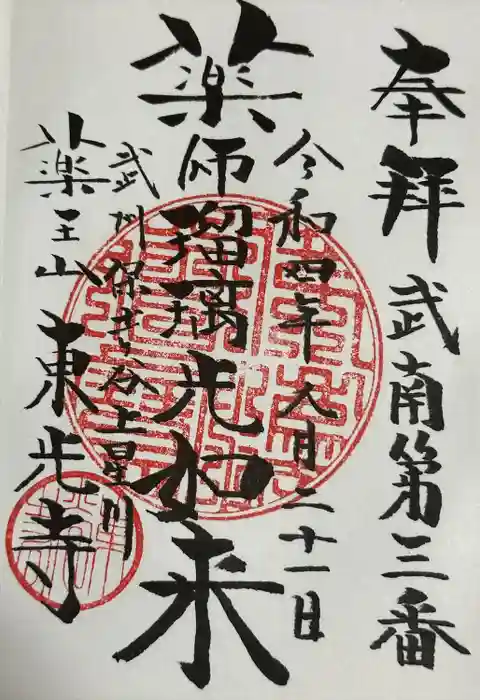 奉拝 武南第三番
令和四年九月二十一日
薬師瑠璃光如来
武州保土ヶ谷上星川
薬王山 東光寺